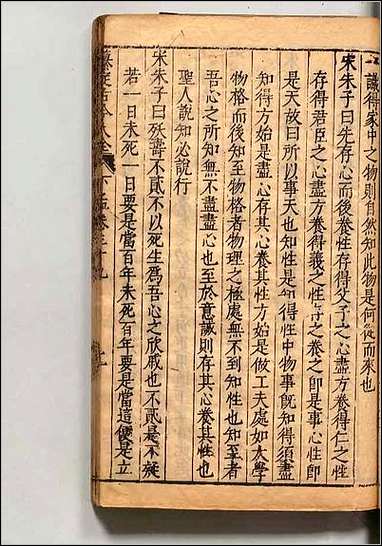 識得家中之物則自然知此物是何從而來也
宋朱子曰先存心而後養性存得父子之心盡方養得仁之性
存得君臣之心盡方養得義之性存之養之卽是事心性卽
是天故曰所以事天也知性是知得性中物事旣知得須盡
知得方始是盡心存其心養其性方始是做工夫處如大學
物格而後知至物格者物理之極處無不到知性也知至者
吾心之所知無不盡盡心也至於意誠則存其心養其性也
聖人說知必說行
宋朱子曰殀壽不貳不以死生爲吾心之欣戚也不貳是不疑
若一日未死一日要是當百年未死百年要是當這便是立
下孟卷之十九